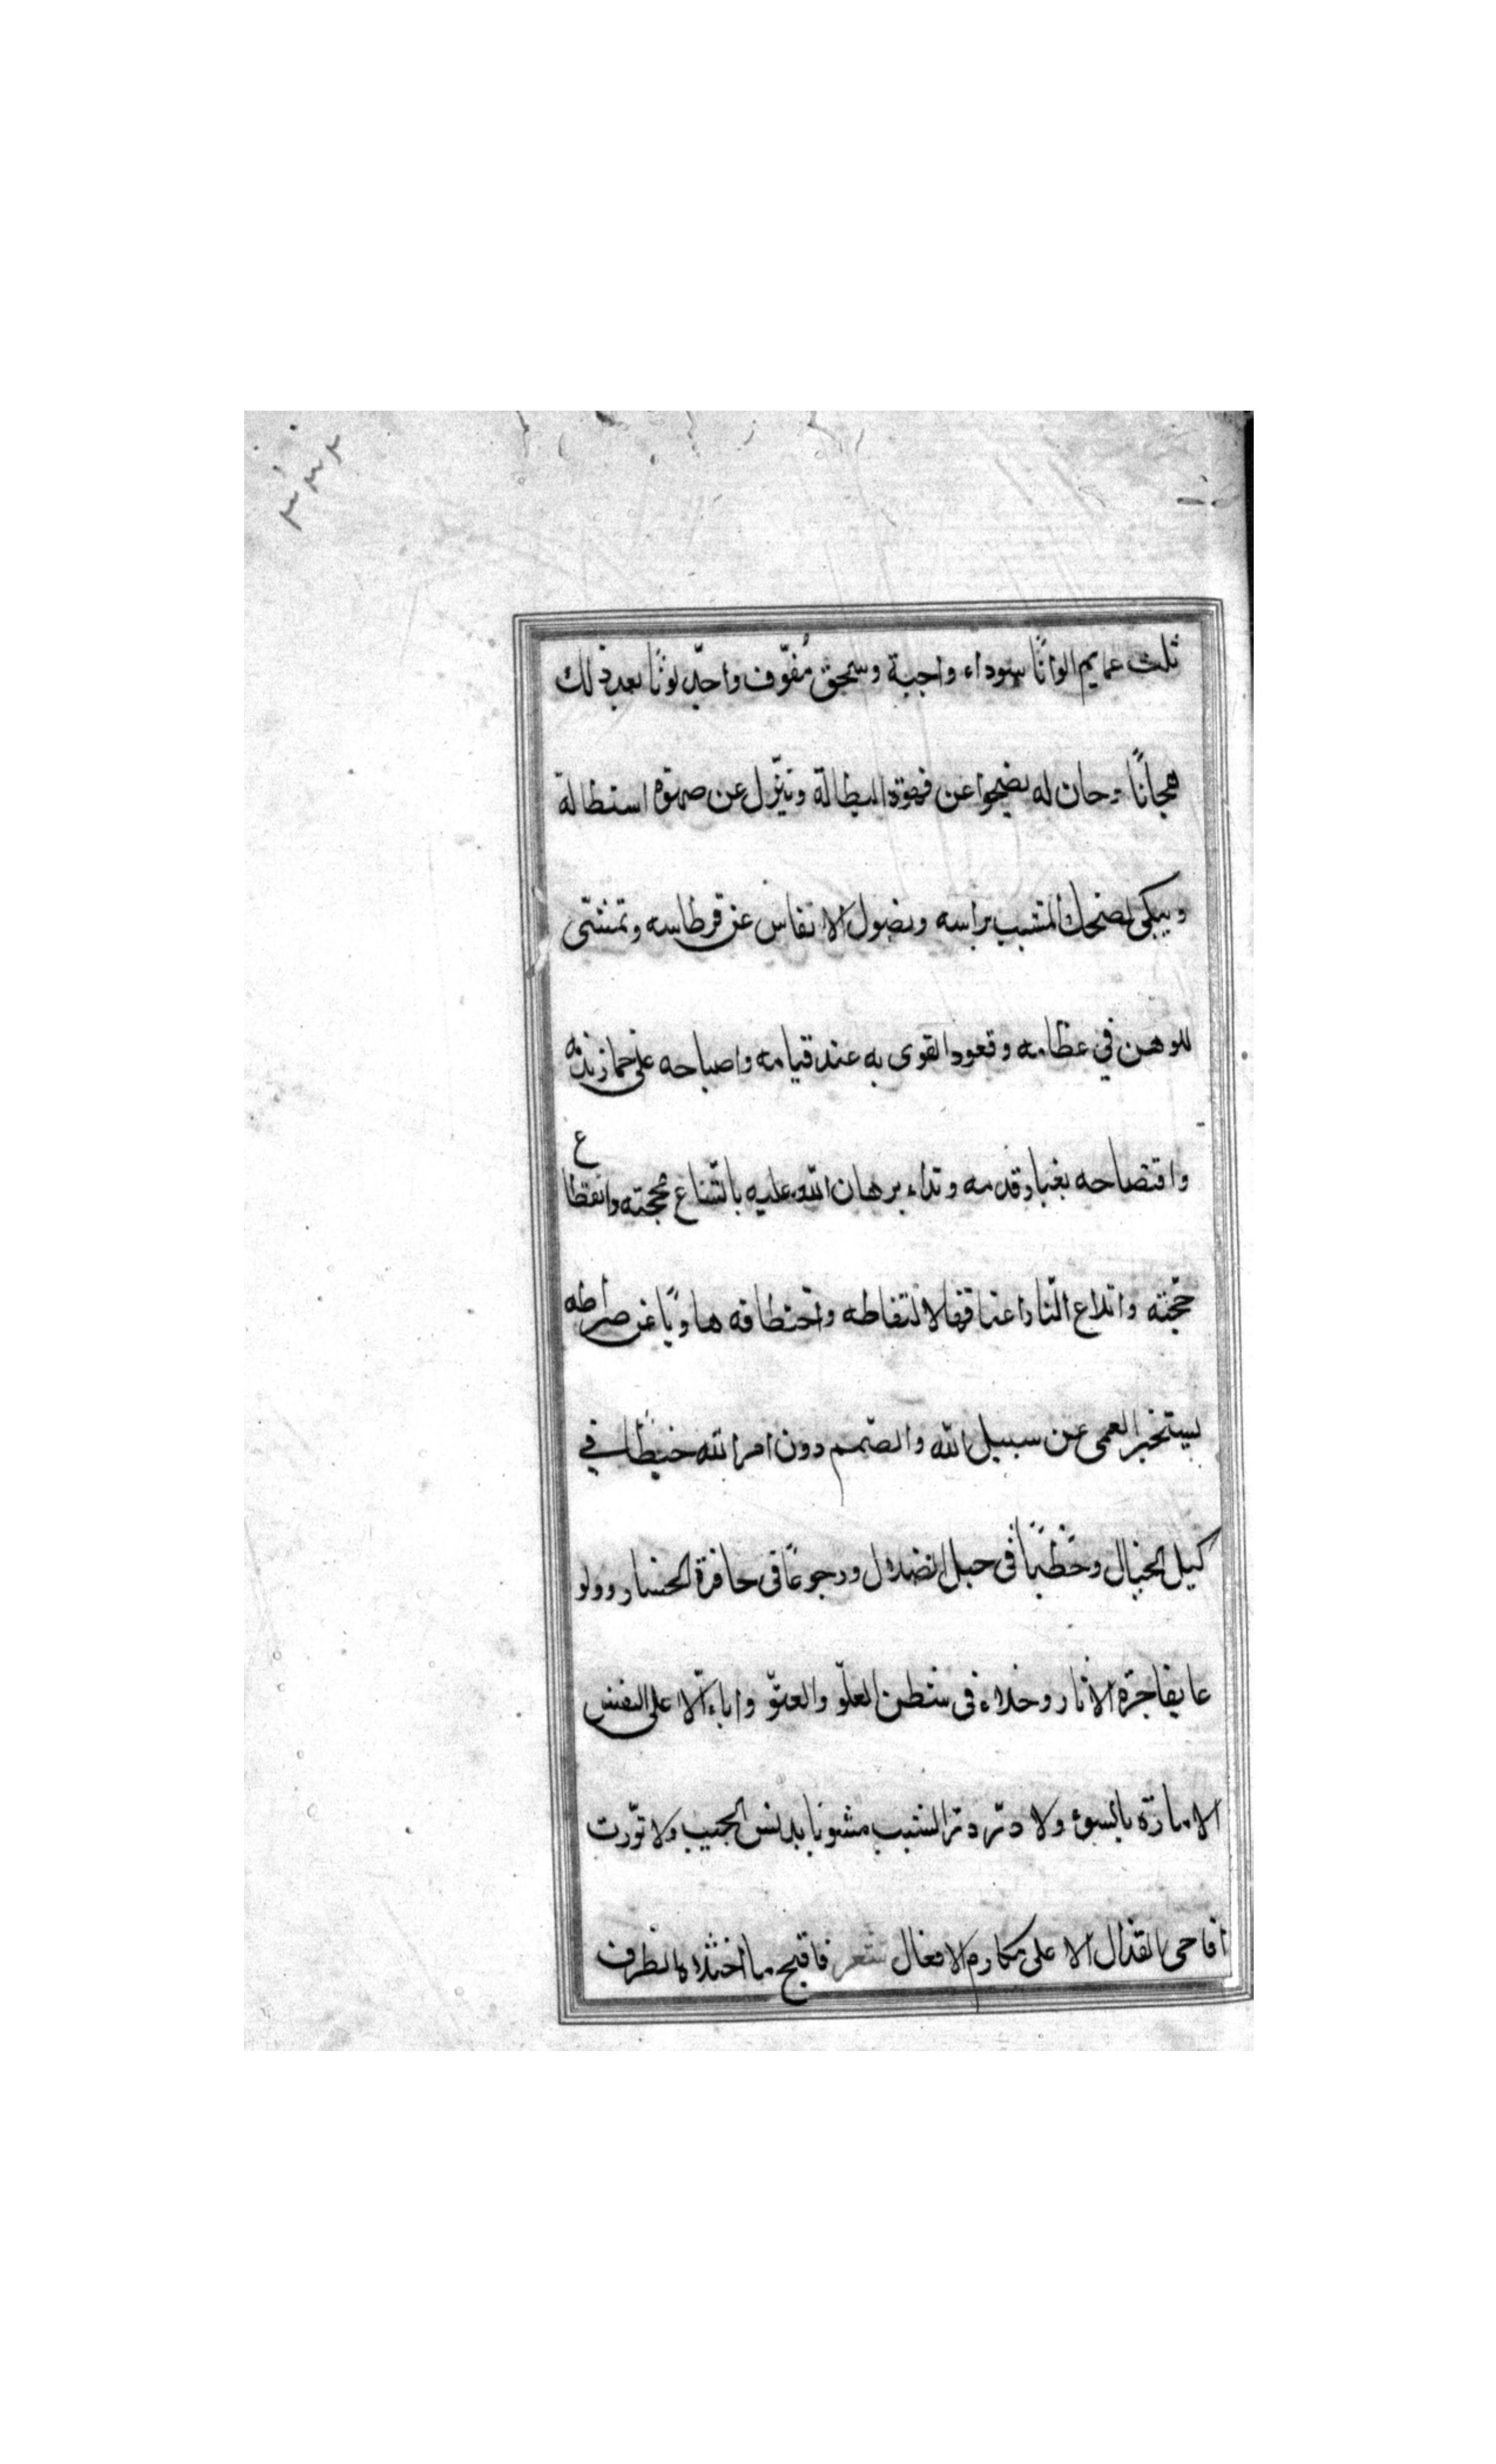 ثلث عمايم الوانًا سوداء واجبة وسحق مُفوّف واجدّ لونًا بعد ذلك
هجانًا وحان له يضحوا عن قهوة البطالة وتنزّل عن صهوة استطالة
ويبكى لضحك المشيب براسه ونصول الانفاس عن قرطاسه وتمشّى
للوهن في عظامه وقعود القوى به عند قيامه واصباحه على
وافتضاحه بغبار قدمه ونداء برهان الله عليه باتّساع محجته وانقطاع
حجّته واتلاع النّار اعناقها لالتقاطه واختطافه هاويًا عن صراطه
يستخير العمى عن سبيل الله والصّمم دون امر الله خبطًا في
ليل الخبال وحَطَبًا فى حبل الضلال ورجوعًا فى حافرة الخسار وولو
عا بفاجرة الاثار وخلاء فى شطن العلوّ والعتوّ واباء الّا على النفس
الامارة بالسوء ولا درّ درّ الشيب مشوبا بدنس الجيب ولا نوّرت
اقاحى القذال الا على مكارم الافعال شعر فاقبح ما اختاره الطرف